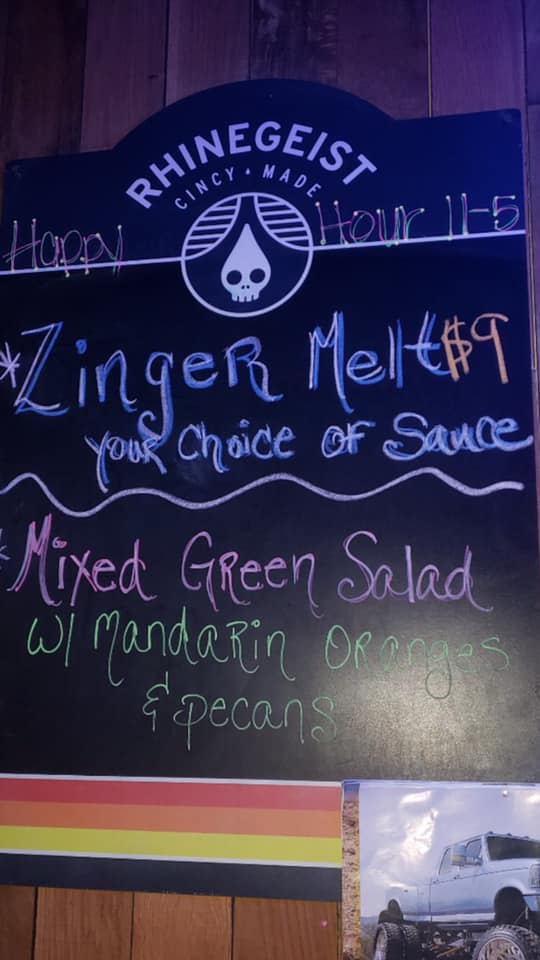 RHINEGEIST
CINCY • MADE
Happy Hour 11-5
*Zinger Melt $9
Your Choice of Sauce
*Mixed Green Salad
w/ Mandarin Oranges
& pecans